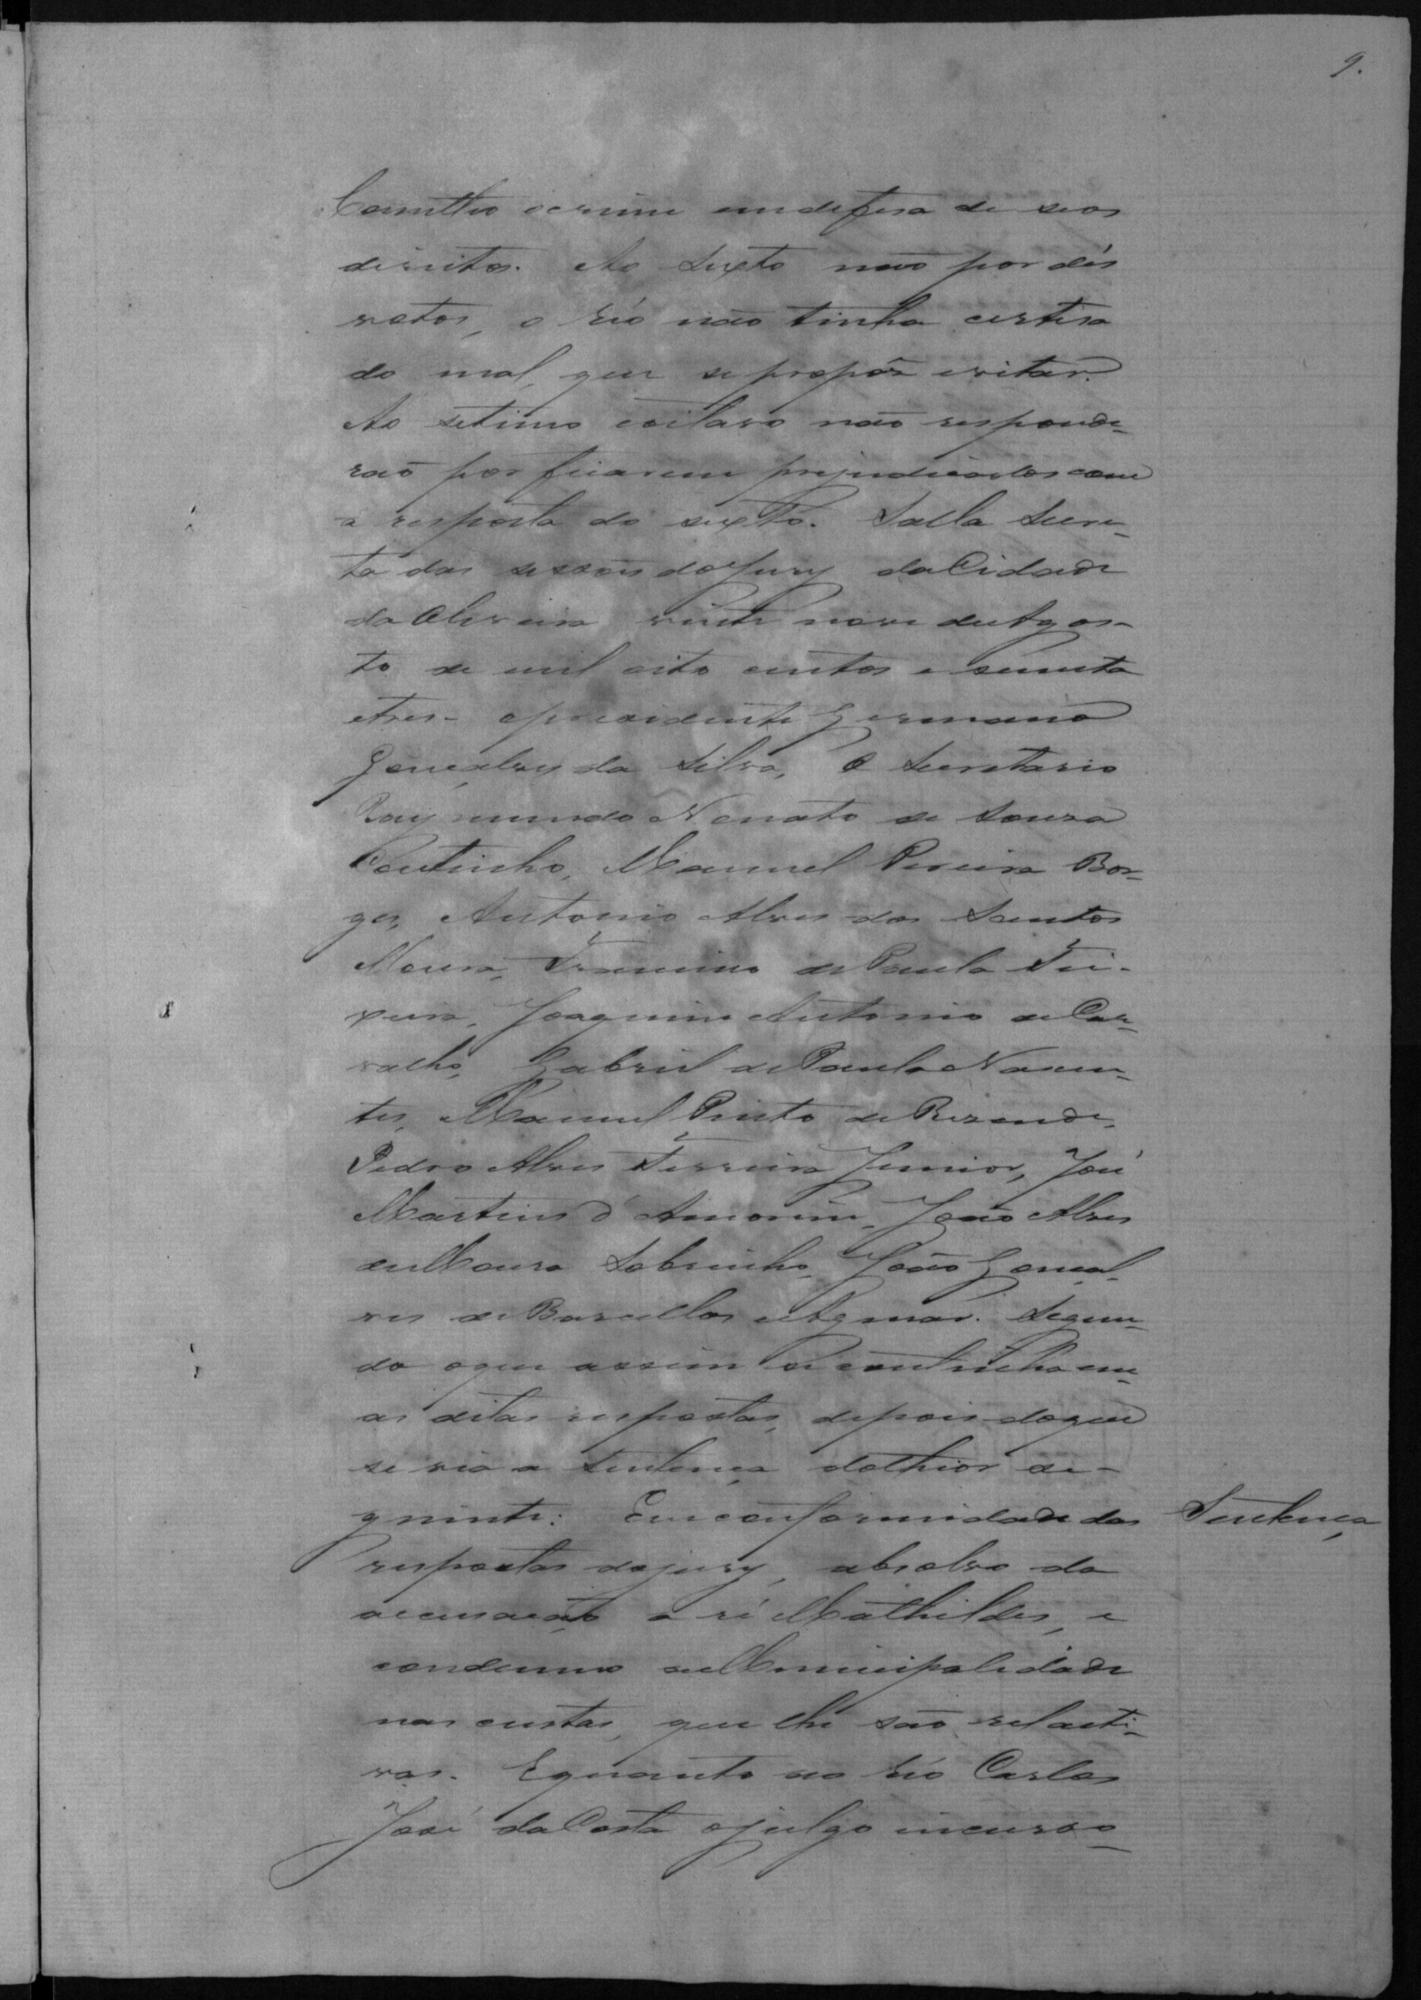 9.
Cometteo o crime em defesa de seos
direitos. Ao sexto não por dés
votos, o réo não tinha certesa
do mal, que se propôz evitar.
Ao setimo e oitavo não responde-
rão por ficarem prejudicados com
a resposta do sexto. Salla Secre-
ta das sessões do Jury da Cidade
da Oliveira vinte nove de Agos-
to de mil oito centos e secenta
e tres. O presidente Germano
Gonçalves da Silva, O Secretario
Raymundo Nonato de Souza
Coutinho, Manuel Pereira Bor-
ges, Antonio Alves dos Santos
Moura, Francisco de Paula Tei-
xeira, Joaquim Antonio de Car-
valho, Gabriel de Paula Navan-
tes, Manuel Pinto de Rezende,
Pedro Alves Ferreira Junior, José
Martins d'Amorim, João Alves
de Moura Sobrinho, João Gonçal-
ves de Barcellos e Aguiar. Segun-
do o que assim se continha em
as ditas respostas, depois do que
se via a Sentença do theor se-
guinte: Em conformidade das
Sentença
respostas do jury, absolvo da
accusação a ré Mathildes, e
condemno a Municipalidade
nas custas, que lhe são relacti-
vas. E quanto ao réo Carlos
José da Costa o julgo incurso